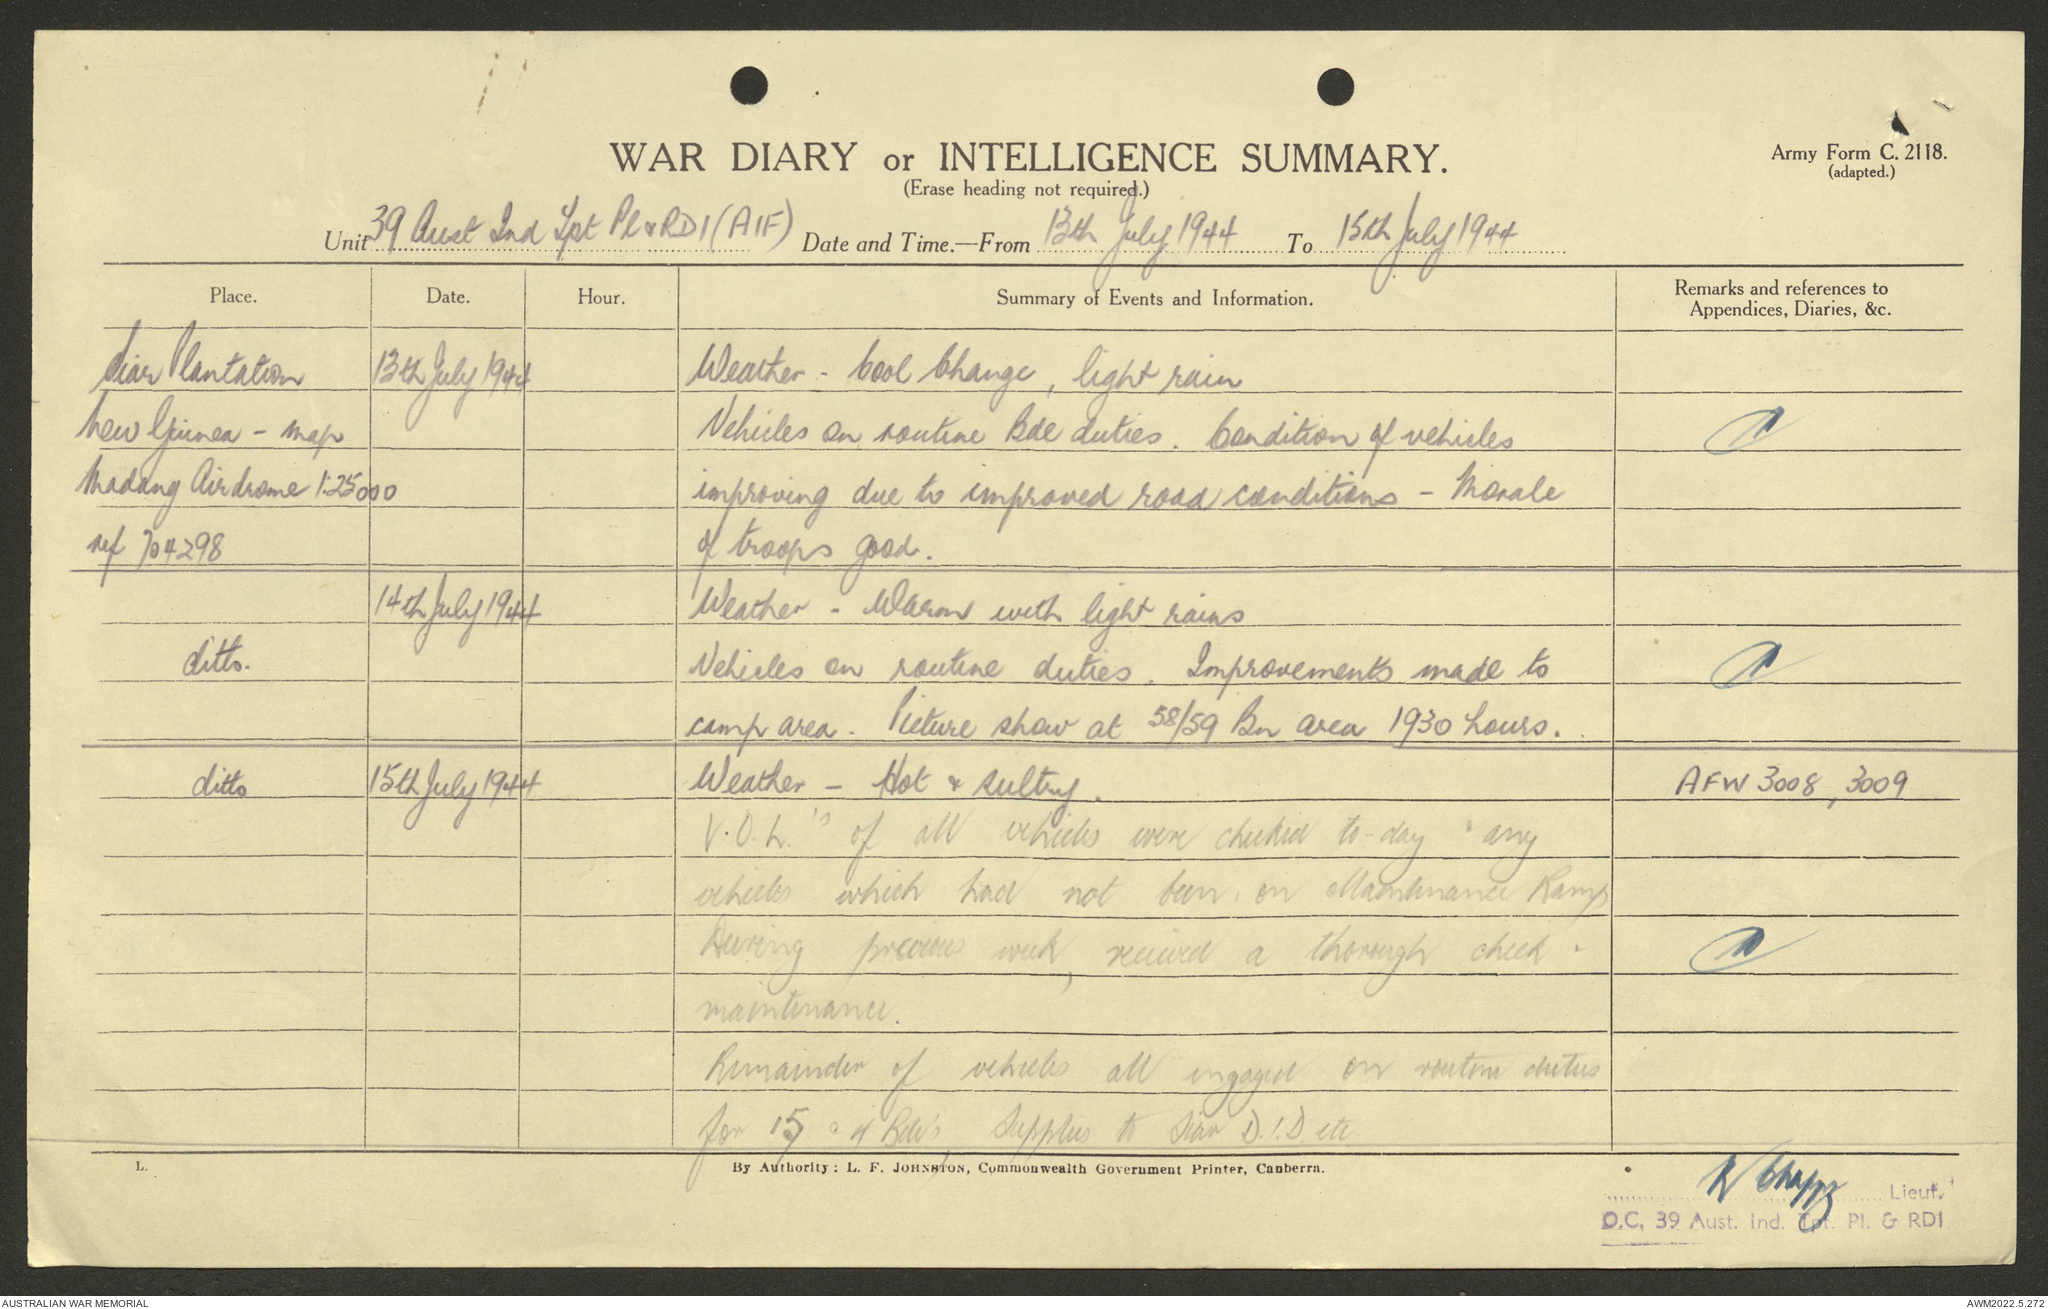 WAR DIARY or INTELLIGENCE SUMMARY.
(Erase heading not required.)
Army Form C. 2118.
(adapted.)
Unit 39 Aust Ind Tpt Pl & RD1 (AIF) Date and Time.—From 13th July 1944 To 15th July 1944
Place. Date. Hour. Summary of Events and Information. Remarks and references to Appendices, Diaries, &c.
Siar Plantation 13th July 1944 Weather - Cool Change, light rain
New Guinea - Map Vehicles on routine Bde duties. Condition of vehicles
Madang Airdrome 1:25000 improving due to improved road conditions - Morale
ref 704298 of troops good.
14th July 1944 Weather - Warm with light rains
ditto. Vehicles on routine duties. Improvements made to
camp area. Picture show at 58/59 Bn area 1930 hours.
ditto 15th July 1944 Weather - Hot & sultry. AFW 3008, 3009
V.O.L.'s of all vehicles were checked to-day & any
vehicles which had not been on Maintenance Ramp
During previous week, received a thorough check &
maintenance.
Remainder of vehicles all engaged on routine duties
for 15 Bde's Supplies to Siar D.I.D. etc
L. By Authority: L. F. JOHNSTON, Commonwealth Government Printer, Canberra.
Lieut.
O.C. 39 Aust. Ind. Tpt. Pl. & RD1
AUSTRALIAN WAR MEMORIAL
AWM2022.5.272